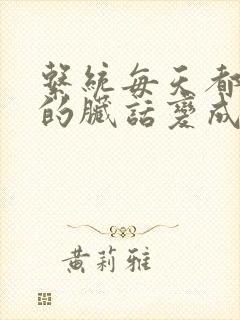 繫統每天都
的臟話變成
黃莉雅